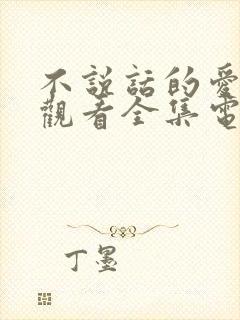 不說話的愛
觀看全集電
丁墨